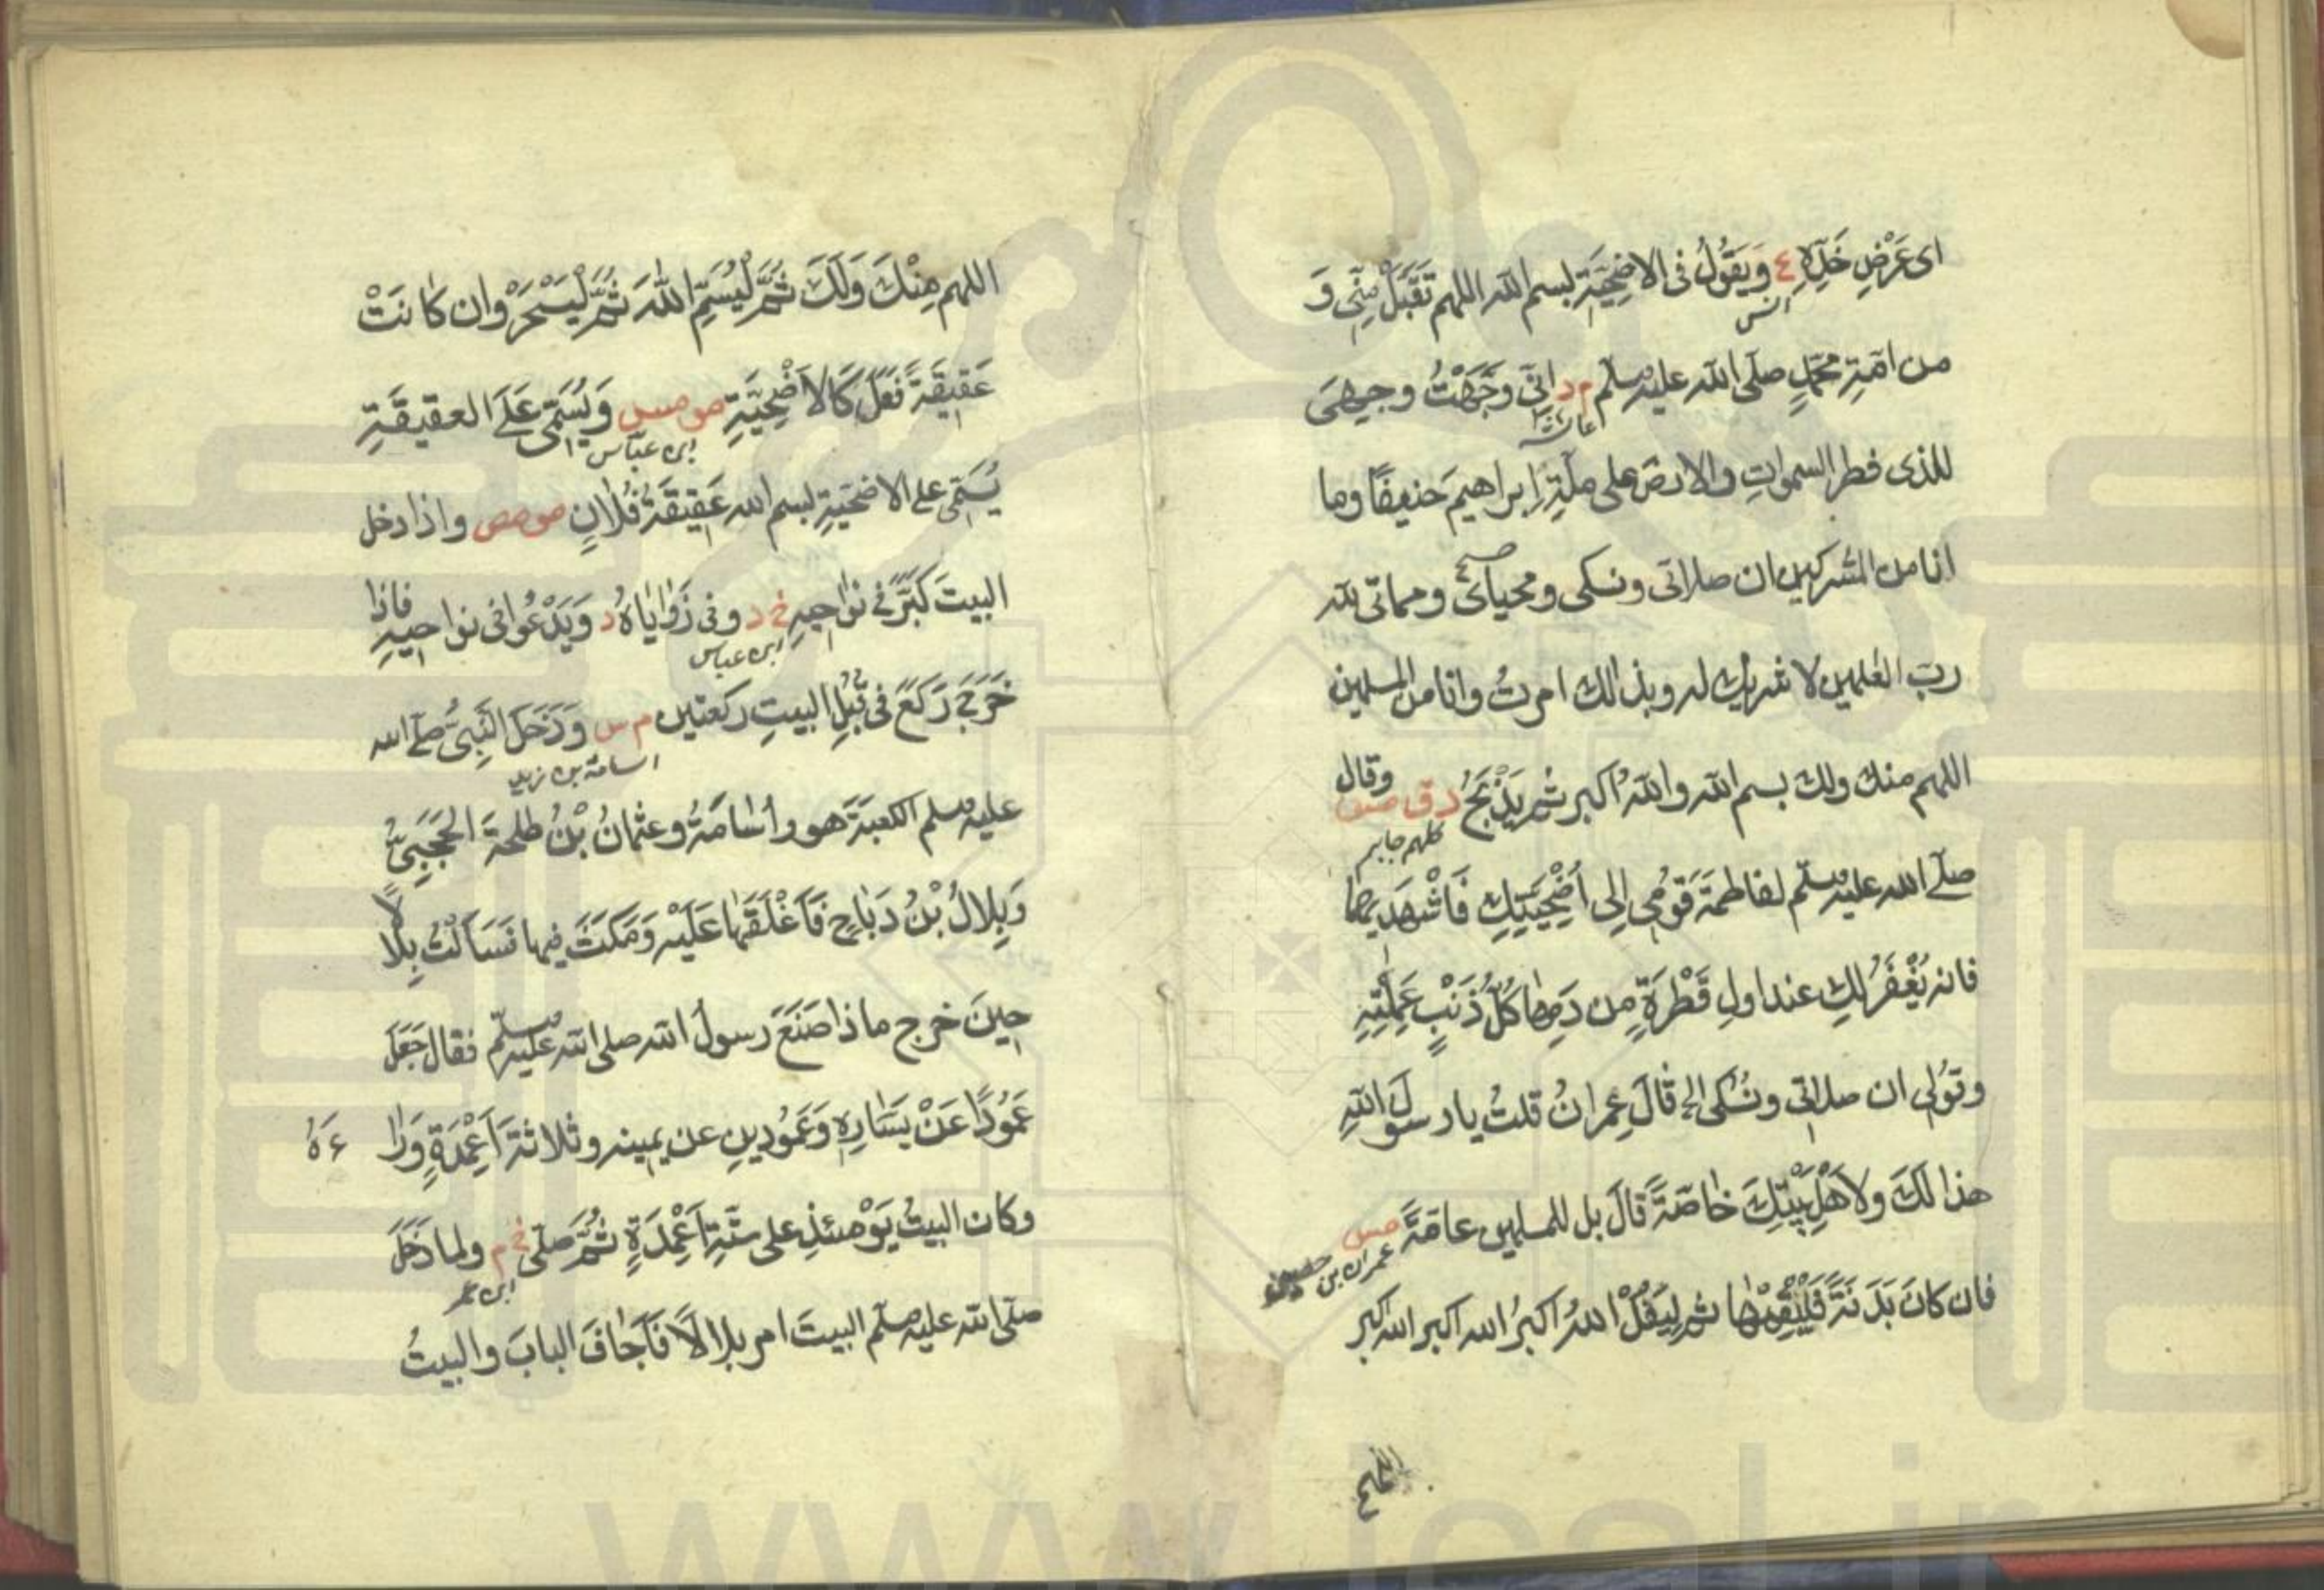 اى عَرْضِ خَدِّهِ ع وَيَقُولُ فى الاضحِيَّةِ بسم الله اللهم تَقَبَّلْ مِنّى وَ
انس
من امّةِ محمّدٍ صلّى الله عليه وسلّم م د اِنّى وَجَّهْتُ وجهِىَ
عائشة
للذى فطر السمواتِ والارضَ على ملّةِ اِبراهيمَ حنيفًا وما
انا من المشركين ان صلاتى ونسكى ومحياىَ ومماتى لله
ربّ العٰلمين لا شريك له وبذالك امرتُ وانا من المسلمين
اللهم منك ولك بسم الله واللهُ اكبر ثم يَذْبَحُ د ق مس وقال
كلهم جابر
صلّے الله عليه وسلّم لفاطمةَ قَوُمِى اِلى اُضْحِيَّتِكِ فَاشْهَدِيها
فانه يُغْفَرُ لكِ عند اولِ قَطْرَةٍ من دَمِها كُلُّ ذَنْبٍ عَمِلْتِيهِ
وقُولى ان صلاتى ونُسُكى الخ قالَ عِمرانُ قلتُ يا رسولَ اللهِ
هذا لكَ ولاَهْلِ بَيْتِكَ خاصّةً قالَ بل للمسلمين عامّةً مس
عمران بن حصين
فان كانَ بَدَنَةً فَلْيُقِمْها ثم لِيَقُلْ اللهُ اكبرُ الله اكبر الله اكبر
اللهم
اللهم مِنْكَ وَلَكَ ثُمَّ لْيُسَمِّ اللهَ ثُمَّ لْيَنْحَرْ وان كانَتْ
عَقِيقَةً فَعَلَ كَالاَضْحِيَّةِ مو مس وَيُسَمِّى عَلَى العقيقَةِ
ابن عبّاس
يُسَمّى على الاضحيّةِ بسم الله عَقِيقَةُ فُلانٍ مو مص واذا دخل
البيتَ كَبَّرَ فى نواحِيهِ خ د وفى زَوَايَاهُ د وَيَدْعُوا فى نواحيهِ فاذا
ابن عباس
خَرَجَ رَكَعَ فى قُبُلِ البيتِ ركعتين م س وَدَخَلَ النَّبِىُّ صلّے الله
اسامة بن زيد
عليه وسلم الكعبَةَ هو واُسَامَةُ وعثمانُ بْنُ طلحةَ الحَجَبِىُّ
وَبِلالُ بْنُ رَبَاحٍ فَاَغْلَقَهَا عَلَيْهِ وَمَكَثَ فيها فَسَاَلْتُ بِلالًا
حِينَ خرج ماذا صَنَعَ رسولُ الله صلى الله عليه وسلّم فقال جَعَلَ
عَمُودًا عَنْ يَسَارِهِ وَعَمُودينِ عن يمينه وثلاثةَ اَعْمِدَةٍ وَرَا ءَهُ
وكان البيتُ يَوْمئذٍ على ستّةِ اَعْمِدَةٍ ثُمَّ صلّى خ م ولما دَخَلَ
ابن عمر
صلّى الله عليه وسلّم البيتَ امر بلالًا فَاَجافَ البابَ والبيتُ